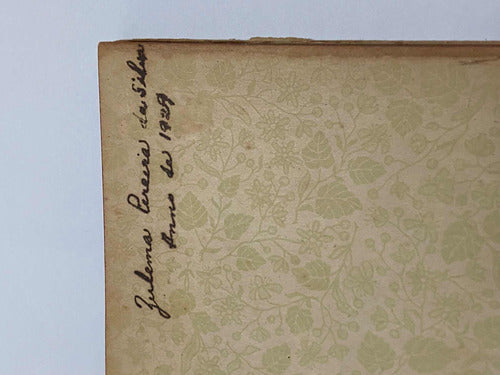 Zulema Pereira da Silva
Anno de 1929